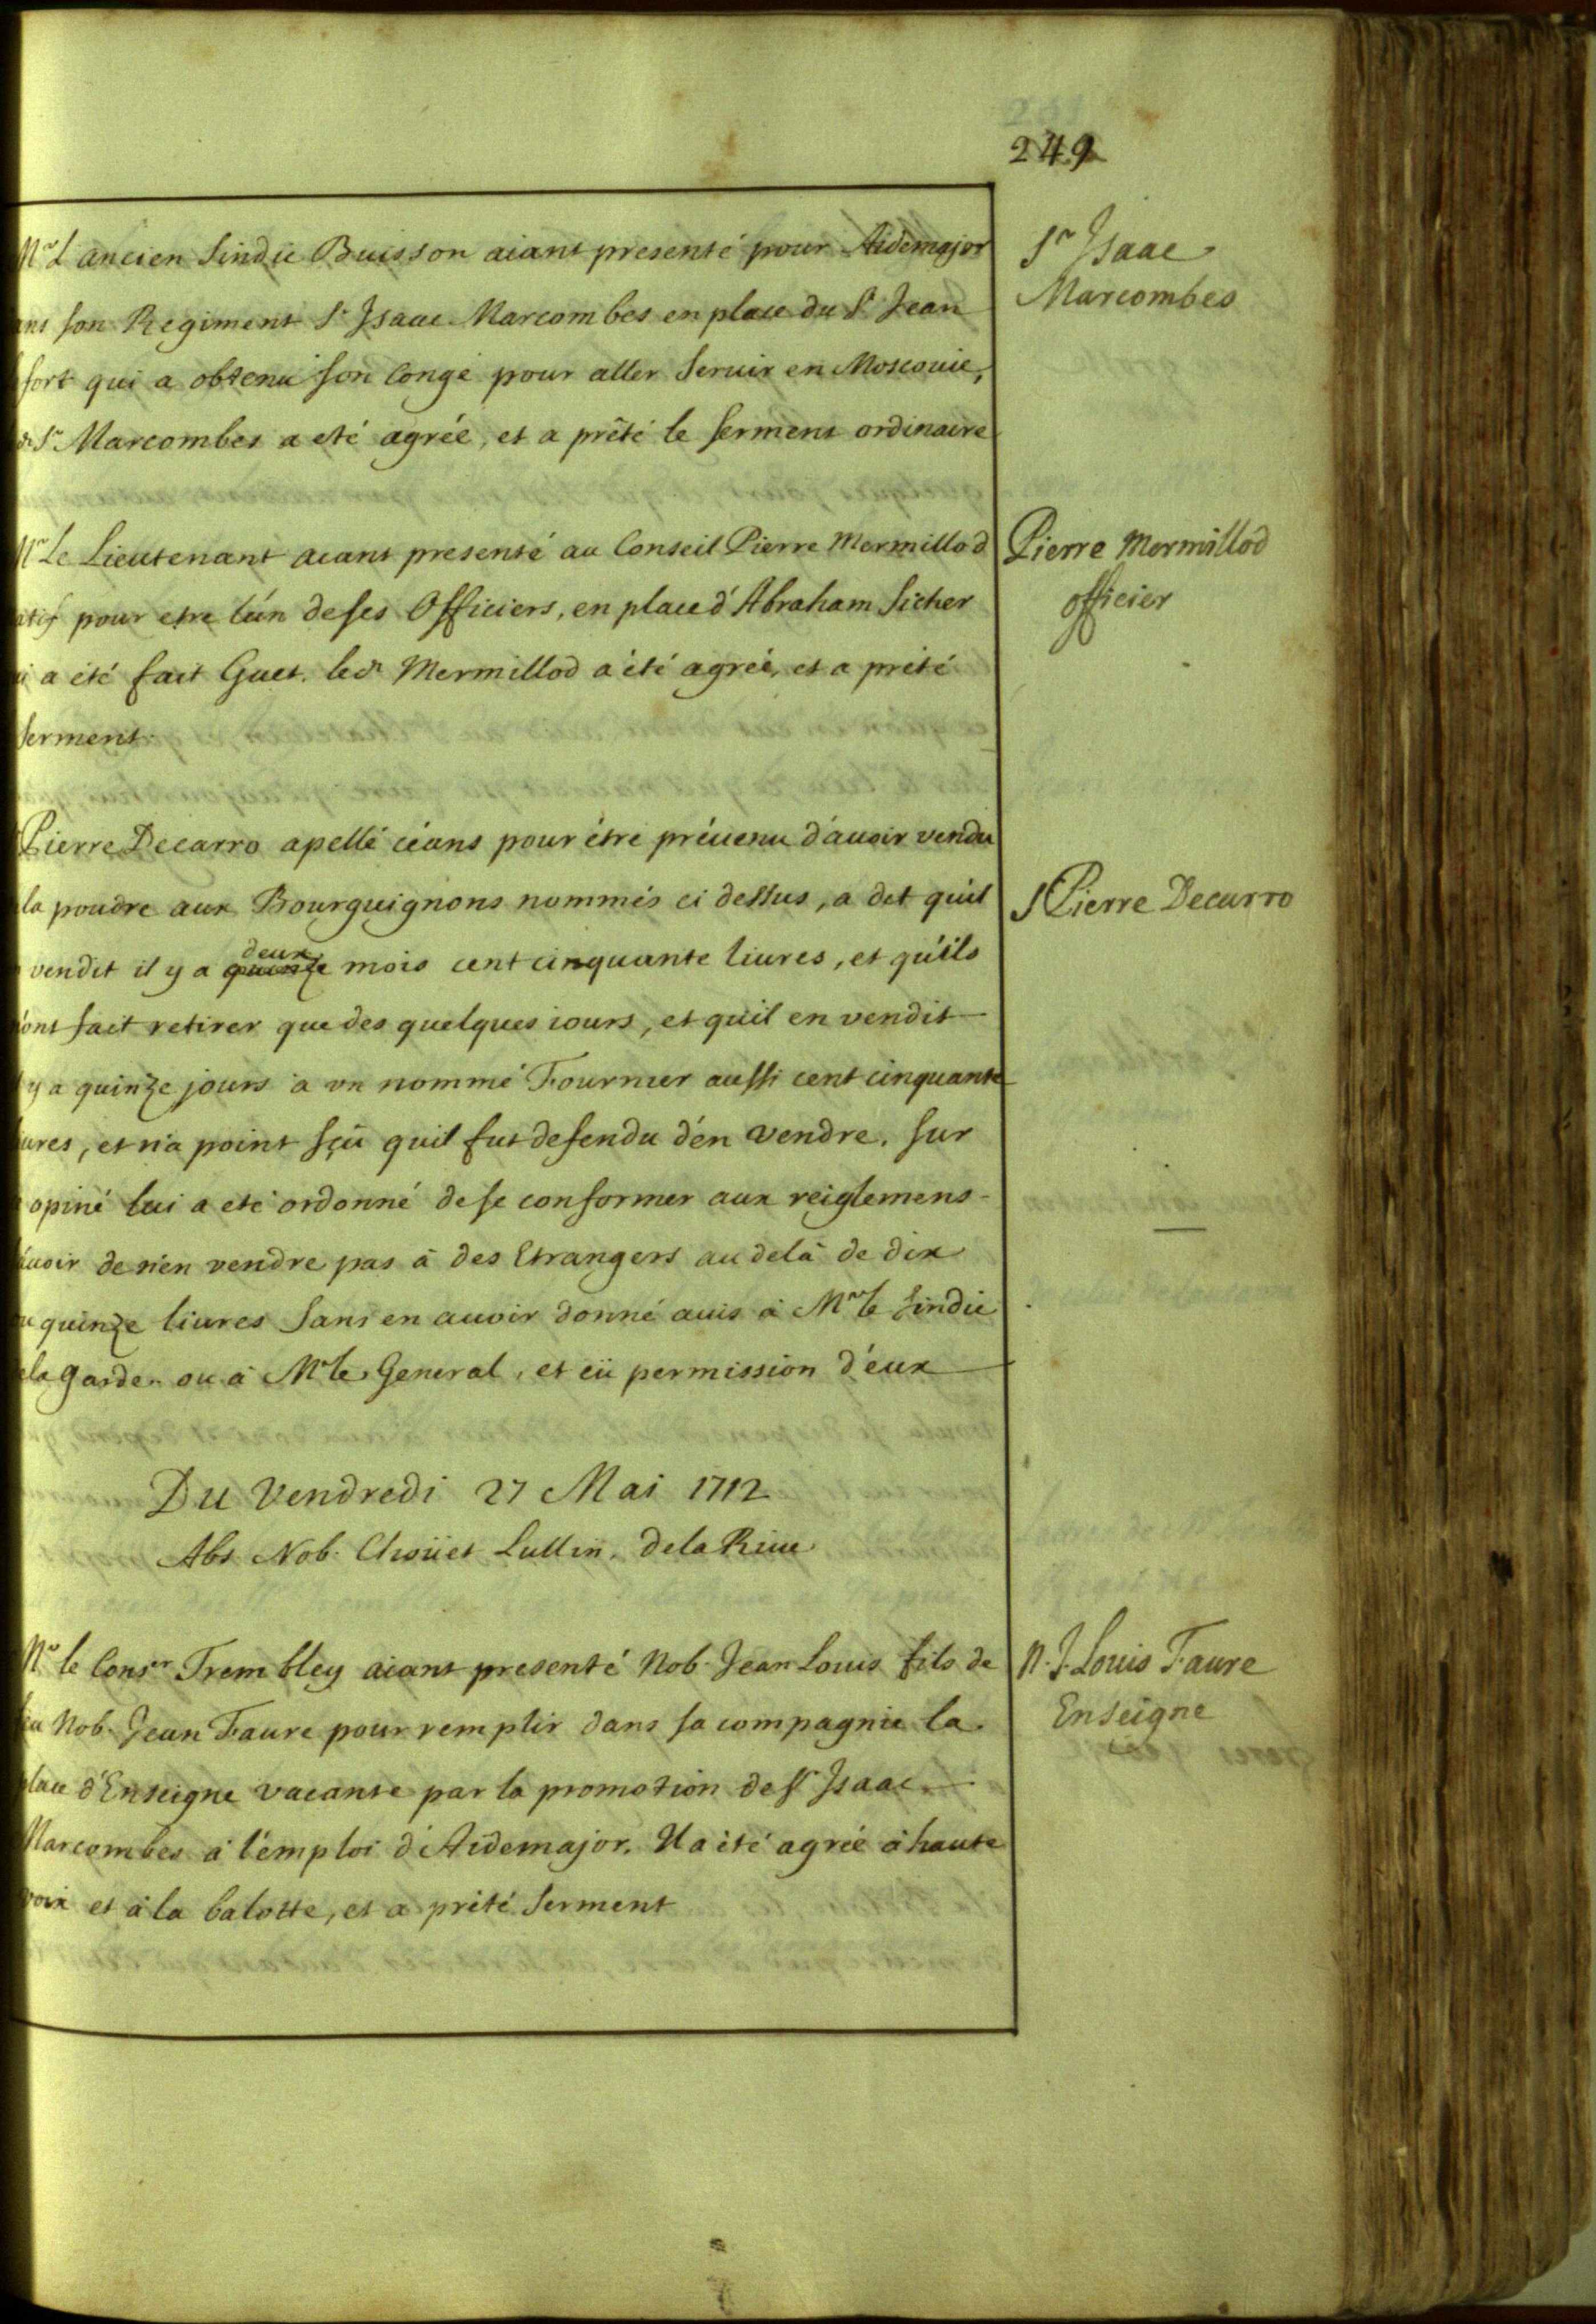 249
Mr L'ancien Sindic Buisson aiant presenté pour Aidemajor
ans son Regiment Sr Isaac Marcombes en place du Sr Jean
fort qui a obtenu son congé pour aller servir en Moscovie,
dt Sr Marcombes a eté agréé, et a prêté le serment ordinaire
Sr Isaac
Marcombes
Mr Le Lieutenant aiant presenté au Conseil Pierre Mermillod
atif pour etre l'un de ses Officiers, en place d'Abraham Sicher
i a été fait Guet. ledt Mermillod a été agréé, et a prété
serment.
Pierre Mermillod
officier
Pierre Decarro apellé céans pour être prévenu d'avoir vendu
la poudre aux Bourguignons nommés ci dessus, a dit qu'il
vendit il y a quinze deux mois cent cinquante livres, et qu'ils
ont fait retirer que des quelques iours, et qu'il en vendit
y a quinze jours à un nommé Fournier aussi cent cinquante
ures, et n'a point sçû qu'il fut defendu d'en vendre. sur
opiné lui a eté ordonné de se conformer aux reiglemens
avoir de n'en vendre pas à des Etrangers au delà de dix
u quinze livres sans en avoir donné avis à Mr le Sindic
ela garde ou à Mr le General, et eü permission d'eux
S Pierre Decarro
Du Vendredi 27 Mai 1712
Abs Nob. Choüet Lullin, de la Riue
Mr le Consr Trembley aiant presenté Nob. Jean Louis fils de
feu Nob. Jean Faure pour remplir dans sa compagnie la
place d'Enseigne vacante par la promotion de Sr Isaac
Marcombes à l'emploi d'Aidemajor. Il a été agréé à haute
voix et à la balotte, et a prété serment
N. J. Louis Faure
Enseigne